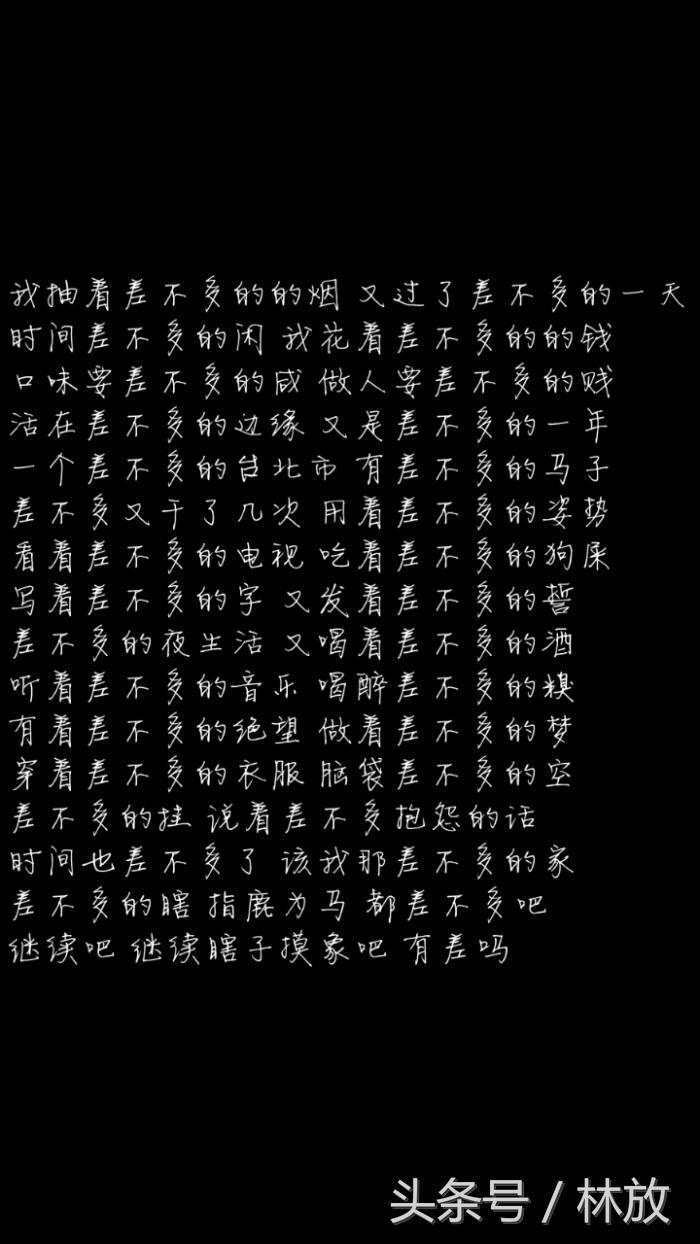 我抽着差不多的的烟 又过了差不多的一天
时间差不多的闲 我花着差不多的的钱
口味要差不多的咸 做人要差不多的贱
活在差不多的边缘 又是差不多的一年
一个差不多的台北市 有差不多的马子
差不多又干了几次 用着差不多的姿势
看着差不多的电视 吃着差不多的狗屎
写着差不多的字 又发着差不多的誓
差不多的夜生活 又喝着差不多的酒
听着差不多的音乐 喝醉差不多的糗
有着差不多的绝望 做着差不多的梦
穿着差不多的衣服 脑袋差不多的空
差不多的挂 说着差不多抱怨的话
时间也差不多了 该我那差不多的家
差不多的瞎 指鹿为马 都差不多吧
继续吧 继续瞎子摸象吧 有差吗
头条号/林放